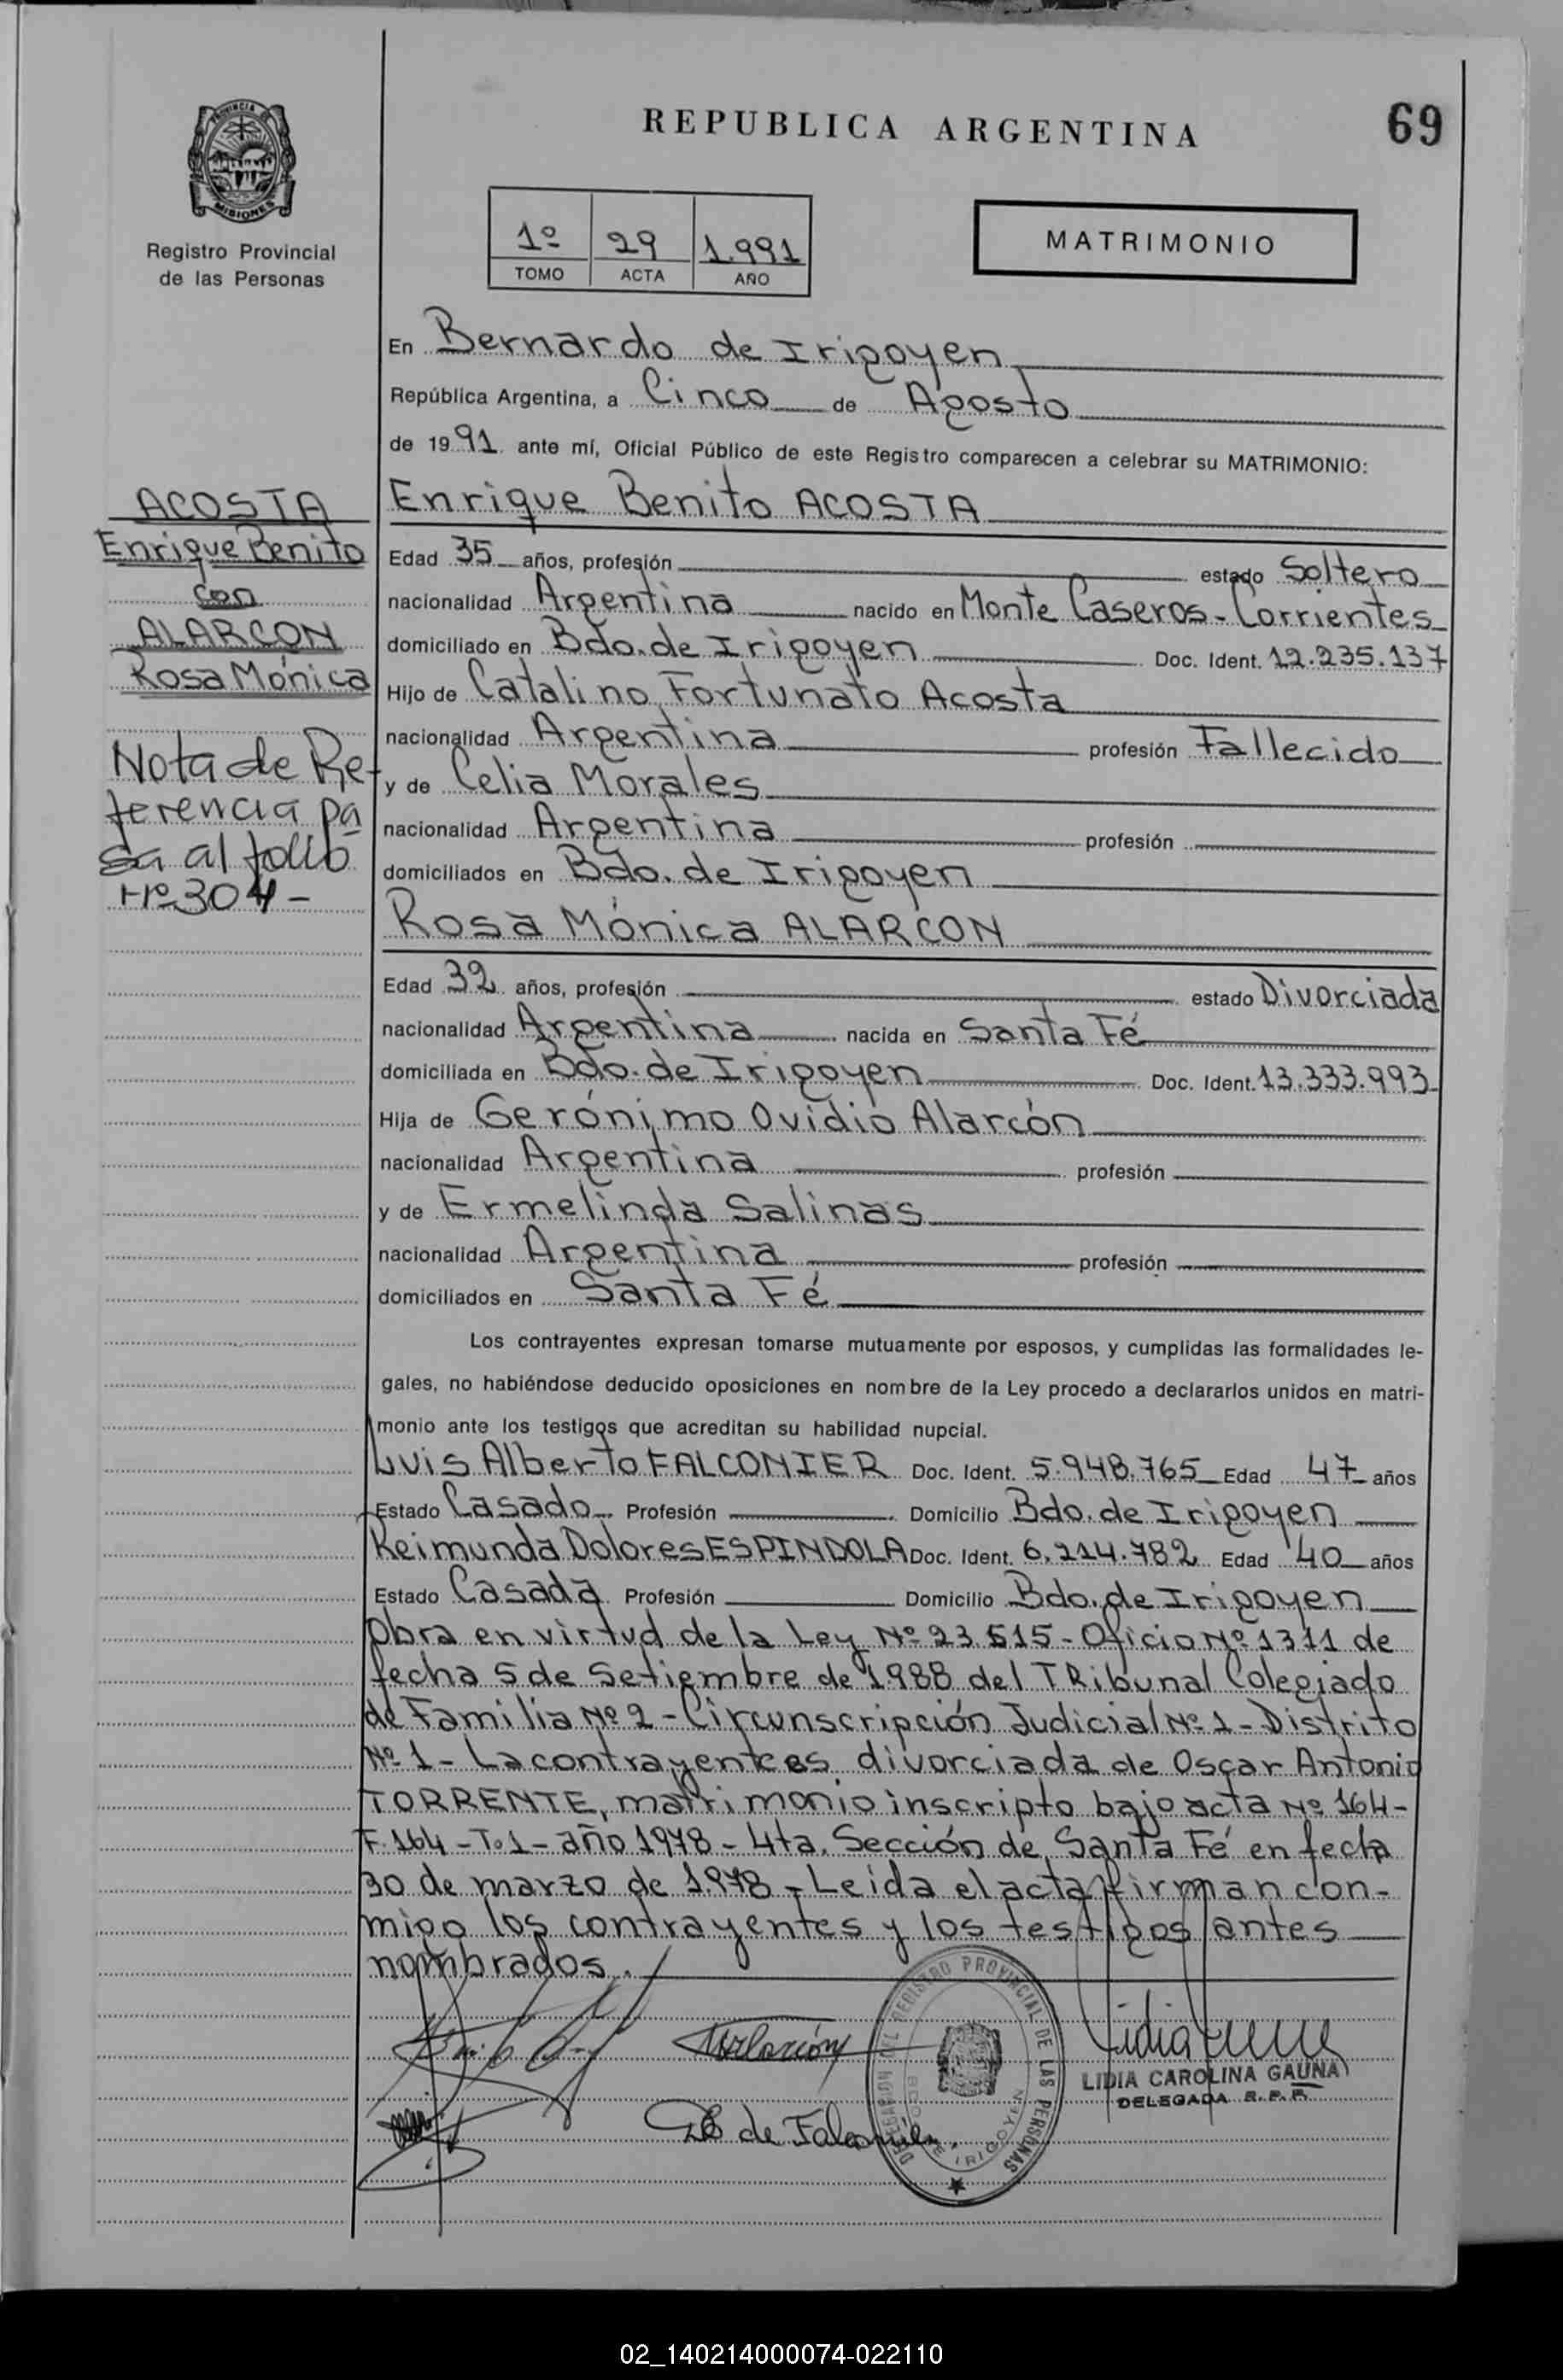 REPUBLICA ARGENTINA
69
PROVINCIA DE
MISIONES
Registro Provincial
de las Personas
1º 29 1.991
TOMO ACTA AÑO
MATRIMONIO
En Bernardo de Irigoyen
República Argentina, a Cinco de Agosto
de 1991 ante mí, Oficial Público de este Registro comparecen a celebrar su MATRIMONIO:
ACOSTA
Enrique Benito
con
ALARCON
Rosa Mónica
Nota de Re-
ferencia pa
sa al folio
Nº 304-
Enrique Benito ACOSTA
Edad 35 años, profesión estado Soltero
nacionalidad Argentina nacido en Monte Caseros-Corrientes
domiciliado en Bdo. de Irigoyen Doc. Ident. 12.235.137
Hijo de Catalino Fortunato Acosta
nacionalidad Argentina profesión Fallecido
y de Celia Morales
nacionalidad Argentina profesión
domiciliados en Bdo. de Irigoyen
Rosa Mónica ALARCON
Edad 32 años, profesión estado Divorciada
nacionalidad Argentina nacida en Santa Fé
domiciliada en Bdo. de Irigoyen Doc. Ident. 13.333.993
Hija de Gerónimo Ovidio Alarcón
nacionalidad Argentina profesión
y de Ermelinda Salinas
nacionalidad Argentina profesión
domiciliados en Santa Fé
Los contrayentes expresan tomarse mutuamente por esposos, y cumplidas las formalidades le-
gales, no habiéndose deducido oposiciones en nombre de la Ley procedo a declararlos unidos en matri-
monio ante los testigos que acreditan su habilidad nupcial.
Luis Alberto FALCONIER Doc. Ident. 5.948.765 Edad 47 años
Estado Casado Profesión Domicilio Bdo. de Irigoyen
Reimunda Dolores ESPINDOLA Doc. Ident. 6.214.782 Edad 40 años
Estado Casada Profesión Domicilio Bdo. de Irigoyen
Obra en virtud de la Ley Nº 23.515- Oficio Nº 1311 de
fecha 5 de Setiembre de 1.988 del TRibunal Colegiado
de Familia Nº 2 - Circunscripción Judicial Nº 1 - Distrito
Nº 1 - La contrayente es divorciada de Oscar Antonio
TORRENTE, matrimonio inscripto bajo acta Nº 164-
F. 164 - T.1 - año 1978 - 4ta. Sección de Santa Fé en fecha
30 de marzo de 1.978 - Leída el acta firman con-
migo los contrayentes y los testigos antes
nombrados.
MAlarcón
de Falconier.
DELEGACION DEL REGISTRO PROVINCIAL DE LAS PERSONAS
BDO DE IRIGOYEN
LIDIA CAROLINA GAUNA
DELEGADA R. P. P.
02_140214000074-022110